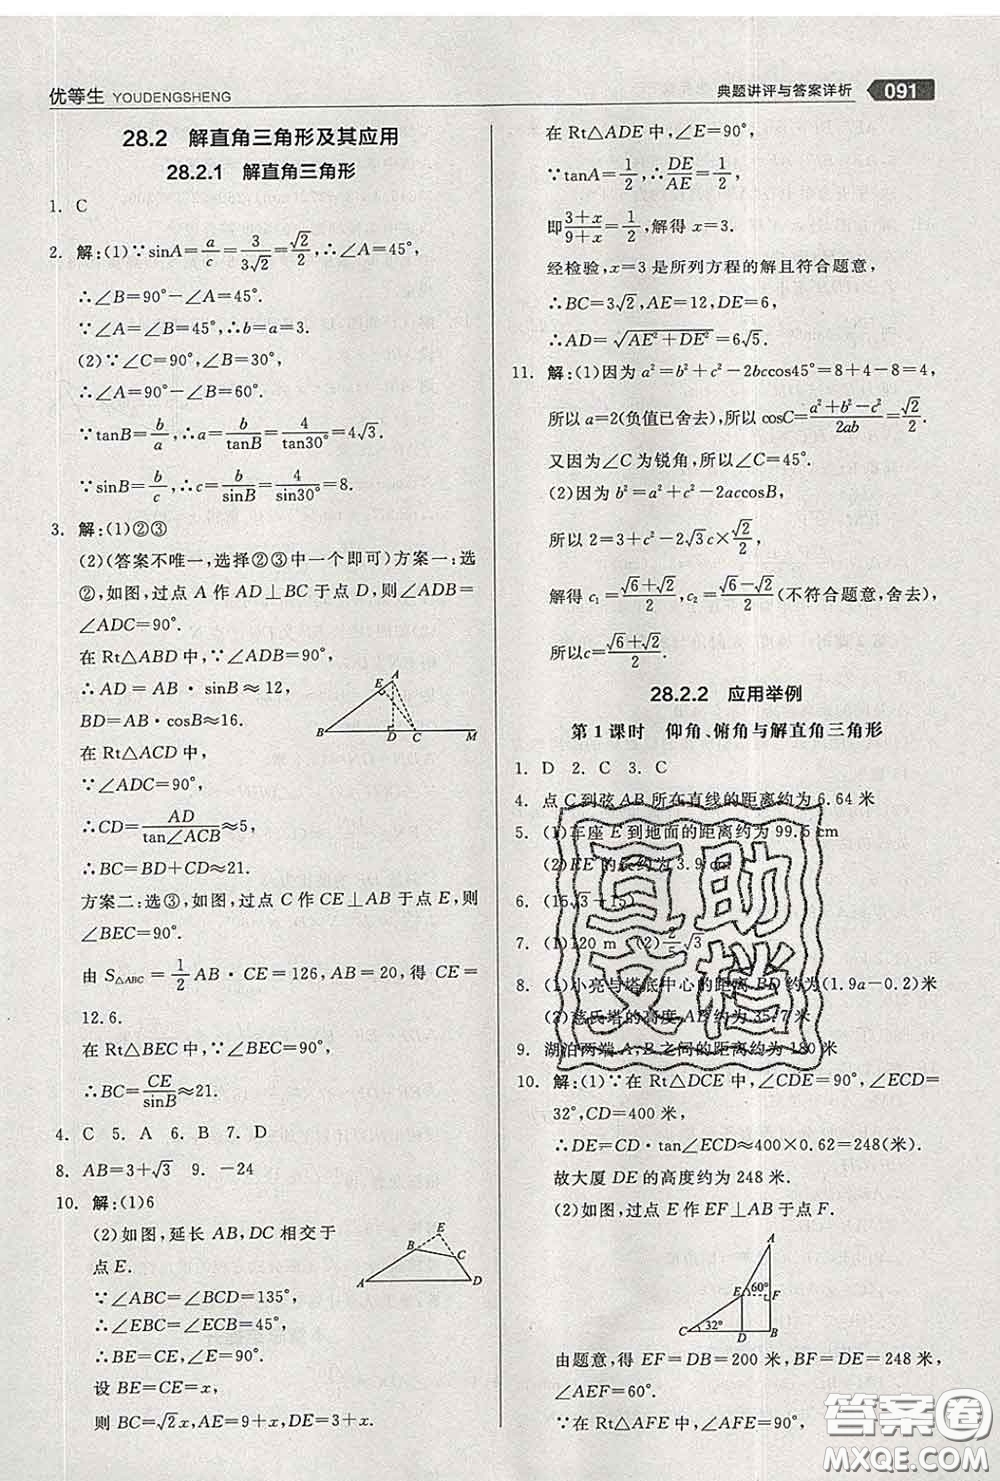 优等生 YOUDENGSHENG
典题讲评与答案详析 091
28.2 解直角三角形及其应用
28.2.1 解直角三角形
1. C
2. 解:(1)∵sinA=a/c=3/(3√2)=√2/2,∴∠A=45°,
∴∠B=90°-∠A=45°.
∵∠A=∠B=45°,∴b=a=3.
(2)∵∠C=90°,∠B=30°,
∴∠A=90°-∠B=60°.
∵tanB=b/a,∴a=b/tanB=4/tan30°=4√3.
∵sinB=b/c,∴c=b/sinB=4/sin30°=8.
3. 解:(1)②③
(2)(答案不唯一,选择②③中一个即可)方案一:选
②,如图,过点 A 作 AD⊥BC 于点 D,则∠ADB=
∠ADC=90°.
在 Rt△ABD 中,∵∠ADB=90°,
∴AD=AB·sinB≈12,
BD=AB·cosB≈16.
在 Rt△ACD 中,
∵∠ADC=90°,
∴CD=AD/tan∠ACB≈5,
∴BC=BD+CD≈21.
A B D C M
方案二:选③,如图,过点 C 作 CE⊥AB 于点 E,则
∠BEC=90°.
由 S△ABC=1/2 AB·CE=126,AB=20,得 CE=
12.6.
在 Rt△BEC 中,∵∠BEC=90°,
∴BC=CE/sinB≈21.
4. C 5. A 6. B 7. D
8. AB=3+√3 9. -24
10. 解:(1)6
(2)如图,延长 AB,DC 相交于
点 E.
∵∠ABC=∠BCD=135°,
∴∠EBC=∠ECB=45°,
∴BE=CE,∠E=90°.
设 BE=CE=x,
则 BC=√2x,AE=9+x,DE=3+x.
E B C A D
在 Rt△ADE 中,∠E=90°,
∵tanA=1/2,∴DE/AE=1/2,
即(3+x)/(9+x)=1/2,解得 x=3.
经检验,x=3 是所列方程的解且符合题意,
∴BC=3√2,AE=12,DE=6,
∴AD=√(AE²+DE²)=6√5.
11. 解:(1)因为 a²=b²+c²-2bccos45°=8+4-8=4,
所以 a=2(负值已舍去),所以 cosC=(a²+b²-c²)/2ab=√2/2.
又因为∠C 为锐角,所以∠C=45°.
(2)因为 b²=a²+c²-2accosB,
所以 2=3+c²-2√3c×√2/2,
解得 c₁=(√6+√2)/2,c₂=(√6-√2)/2(不符合题意,舍去),
所以c=(√6+√2)/2.
28.2.2 应用举例
第 1 课时 仰角、俯角与解直角三角形
1. D 2. C 3. C
4. 点 C 到弦 AB 所在直线的距离约为 6.64 米
5. (1)车座 E 到地面的距离约为 99.5 cm
(2)EE 的长约为 3.9 cm
6. (15√3+15)
7. (1)120 m (2)2/5√3
8. (1)小亮与塔底中心的距离 BD 约为(1.9a-0.2)米
(2)慈氏塔的高度 AB 约为 35.7 米
9. 湖泊两端 A,B 之间的距离约为 180 米
10. 解:(1)∵在 Rt△DCE 中,∠CDE=90°,∠ECD=
32°,CD=400 米,
∴DE=CD·tan∠ECD≈400×0.62=248(米).
故大厦 DE 的高度约为 248 米.
(2)如图,过点 E 作EF⊥AB 于点 F.
A E 60° F C 32° D B
由题意,得 EF=DB=200 米,BF=DE=248 米,
∠AEF=60°.
∵在 Rt△AFE 中,∠AFE=90°,
互助
文档
答案圈
MXQE.COM